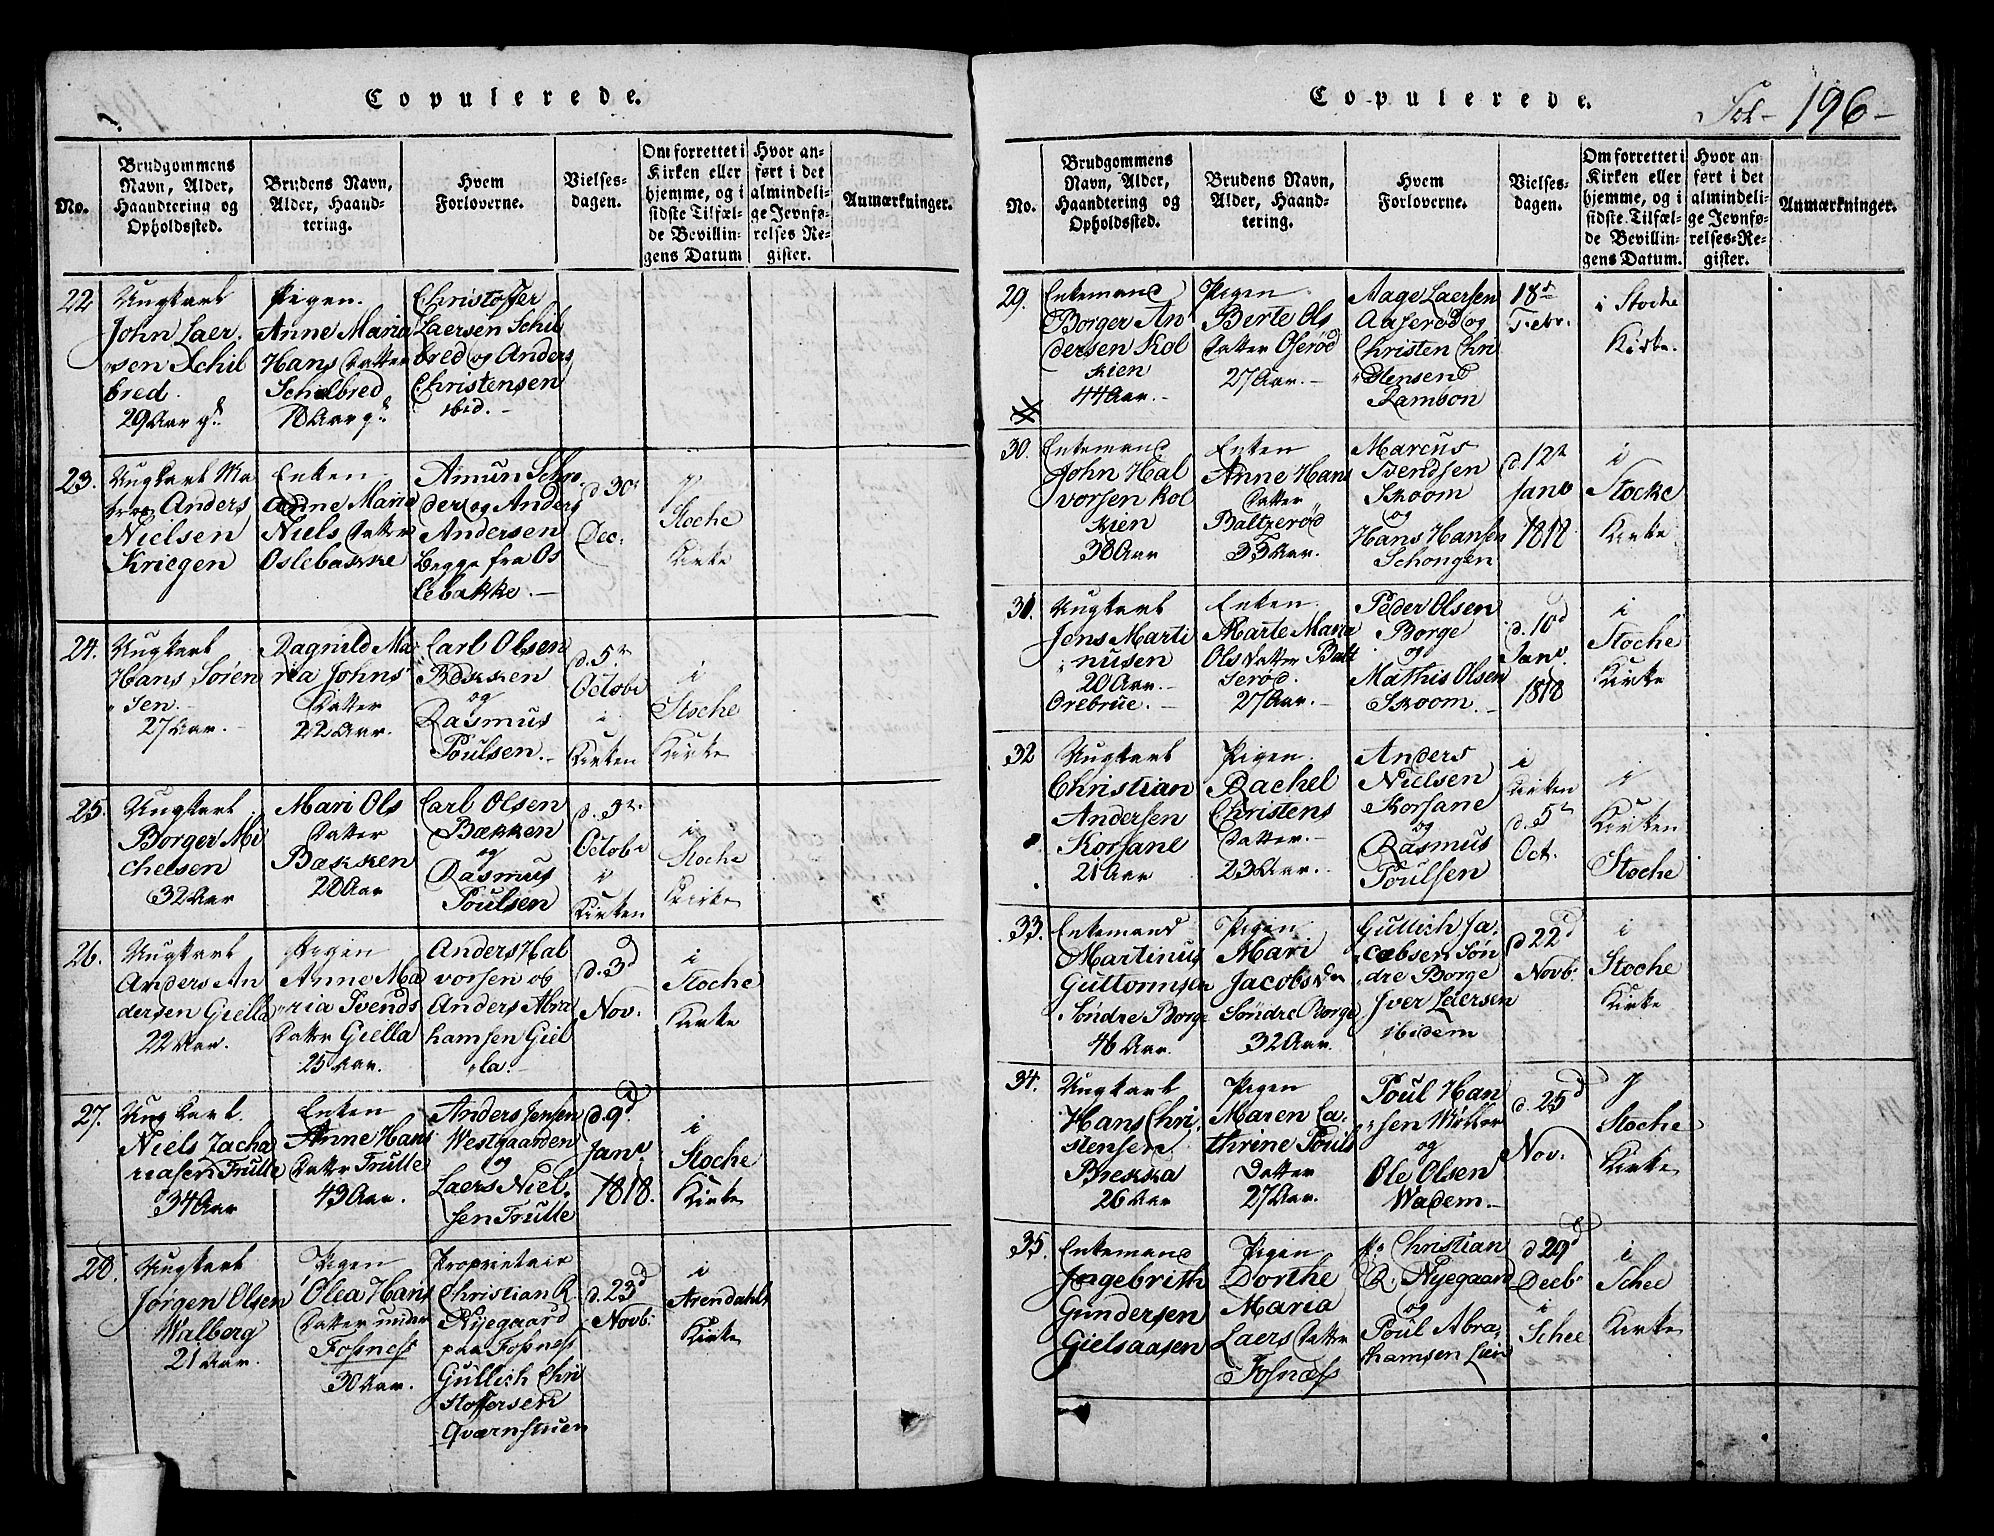 Copulerede.
No.
Brudgommens
Navn, Alder,
Haandtering og
Opholdssted.
Brudens Navn,
Alder, Haand-
tering.
Hvem
Forloverne.
Vielses-
dagen.
Om forrettet i
Kirken eller
hjemme, og i
sidste Tilfæl-
de Bevillin-
gens Datum
Hvor an-
ført i det
almindeli-
ge Jevnfø-
relses-Re-
gister.
Anmærkninger.
22
Ungkarl
John Laer
sen Schil
bred.
29 Aar gl.
Pigen.
Anne Maria
Hans Datter
Schilbred
18 Aar gl.
Christoffer
Laersen Schil
bred og Anders
Christensen
ibid.
23.
Ungkarl Ma
Anders
Nielsen
Kriegen
Enken
Anne Marie
Niels Datter
Oslebakke
Amun Schrø
der og Anders
Andersen
begge fra Os
lebakke.
d. 30
Dec.
i
Stoche
Kirke
24.
Ungkarl
Hans Søren
sen.
27 Aar.
Ragnild Ma
ria Johns
Datter
22 Aar.
Carl Olsen
Bekken
og
Rasmus
Poulsen.
d. 5
Octobr
i
Kirken
i
Stoche
Kirke
25.
Ungkarl
Borger Mi
chelsen
32 Aar
Mari Ols
Datter
Bækken
28 Aar
Carl Olsen
Bækken
og
Rasmus
Poulsen
d. 5
Octobr
i
Kirken
i
Stoche
Kirke
26.
Ungkarl
Anders An
dersen Giella
22 Aar.
Pigen
Anne Ma
ria Svends
Datter Giella
25 Aar.
Anders Hal
vorsen ob
Anders Abra
hamsen Giel
la.
d. 3d
Nov.
i
Stoche
Kirke
27.
Ungkarl.
Niels Zacha
riasen Trulle
34 Aar
Enken
Anne Hans
Datter Trulle
43 Aar.
Anders Jensen
Westgaarden
og
Laers Niel
sen Trulle
d. 9d
Janr
1818.
i
Stoche
Kirke
28.
Ungkarl
Jørgen Olsen
Walberg
21 Aar.
Pigen
Olea Hans
Datter under
Fosness
30 Aar.
Proprietair
Christian R.
Nyegaard
paa Fosness
Gullich Chri
stoffersen
Qværnstuen
d. 23d
Novb.
i
Arendahls
Kirke
Copulerede.
Fol - 196 -
No.
Brudgommens
Navn, Alder,
Haandtering og
Opholdssted.
Brudens Navn,
Alder, Haand-
tering.
Hvem
Forloverne.
Vielses-
dagen.
Om forrettet i
Kirken eller
hjemme, og i
sidste Tilfæl-
de Bevillin-
gens Datum.
Hvor an-
ført i det
almindeli-
ge Jevnfø-
relses-Re-
gister.
Anmærkninger.
29.
Enkemand
Borger An
dersen Kol
kien
44 Aar.
Pigen
Berte Ols
Datter Oserød
27 Aar.
Aage Laersen
Aaserød og
Christen Chri
stensen
Rambon
18d
Febr.
i Stoche
Kirke.
30.
Enkemand
John Hal
vorsen Kol
kien
38 Aar
Enken
Anne Hans
Datter
Baltzerød
33 Aar.
Marcus
Svendsen
Skoom
og
Hans Hansen
Schongen
d. 12
Janr
1818
i
Stocke
Kirke
31.
Ungkarl
Jens Marti
nusen
20 Aar.
Orebrue.
Enken
Marte Maria
Ols Datter Balt
serød.
27 Aar.
Peder Olsen
Borge
og
Mathis Olsen
Skoom.
d. 10d
Janr.
1818
i
Stoche
Kirke
32
Ungkarl
Christian
Andersen
Korsane
21 Aar
Pigen
Rachel
Christens
Datter.
23 Aar.
Anders
Nielsen
Korsane
og
Rasmus
Poulsen
i
Kirken
d. 5
Oct.
i
Kirken
Stoche
33.
Enkemand
Martinus
Guttormsen
Søndre Borge
46 Aar.
Pigen
Mari
Jacobs
Søndre Borge
32 Aar.
Gullich Ja
cobsen Søn
dre Borge
Iver Laersen
ibidem
d 22d
Novb.
i
Stoche
Kirke
34.
Ungkarl
Hans Chri
stensen
Brekka
26 Aar
Pigen
Maren Ca
thrine Pouls
Datter
27 Aar.
Poul Han
sen Møller
og
Ole Olsen
Wadem.
d. 25d
Nov.
J
Stoche
Kirke
35.
Enkemand
Ingebrith
Gundersen
Gielsaasen
Pigen
Dorthe
Maria
Laers Datter
Fosnæss
Christian
R. Nyegaard
og
Poul Abra
hamsen Lien
d 29d
Decb.
i
Schee
i
Schee
Kirke